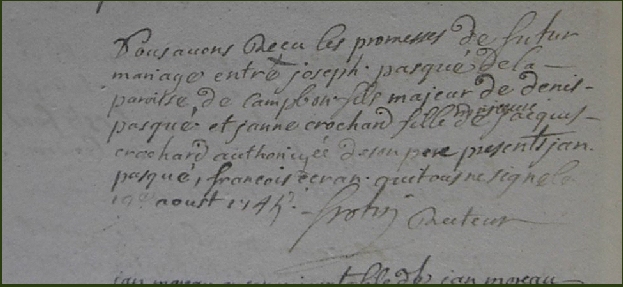 Nous avons Recu les promesses de futur
mariage entre joseph pasqué de la
paroisse de campbon fils majeur de denis
pasqué et janne crochard fille mineure de jacques
crochard authorizée de son pere presents jan
pasqué, francois ecran qui tous ne signe le
19e aoust 174
Recteur
jan moreau de jan moreau